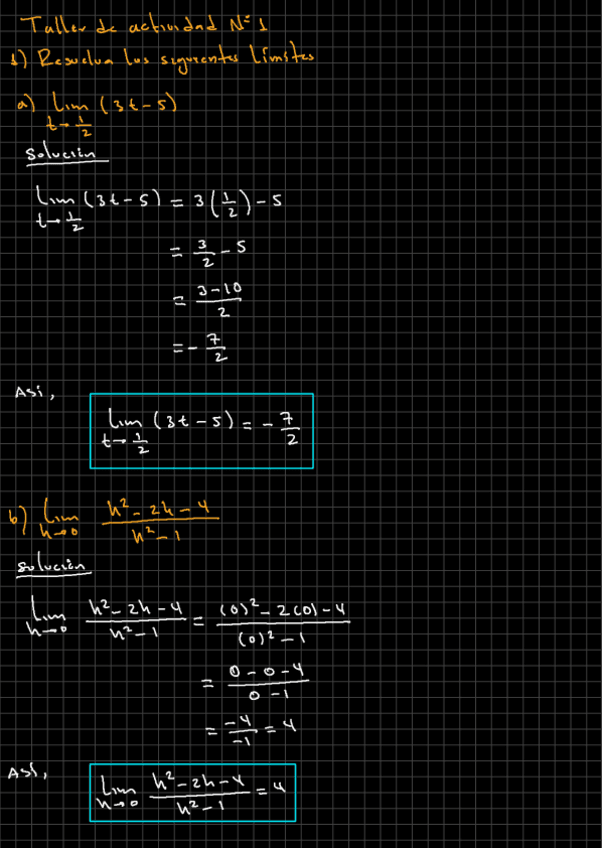 Taller de actividad N° 1
1) Resuelva los siguientes límites
a) lim t→1/2 (3t-5)
Solución
lim t→1/2 (3t-5) = 3(1/2) - 5
= 3/2 - 5
= (3-10)/2
= - 7/2
Así,
lim t→1/2 (3t-5) = - 7/2
b) lim h→0 (h² - 2h - 4)/(h² - 1)
Solución
lim h→0 (h² - 2h - 4)/(h² - 1) = ((0)² - 2(0) - 4)/((0)² - 1)
= (0 - 0 - 4)/(0 - 1)
= -4/-1 = 4
Así,
lim h→0 (h² - 2h - 4)/(h² - 1) = 4